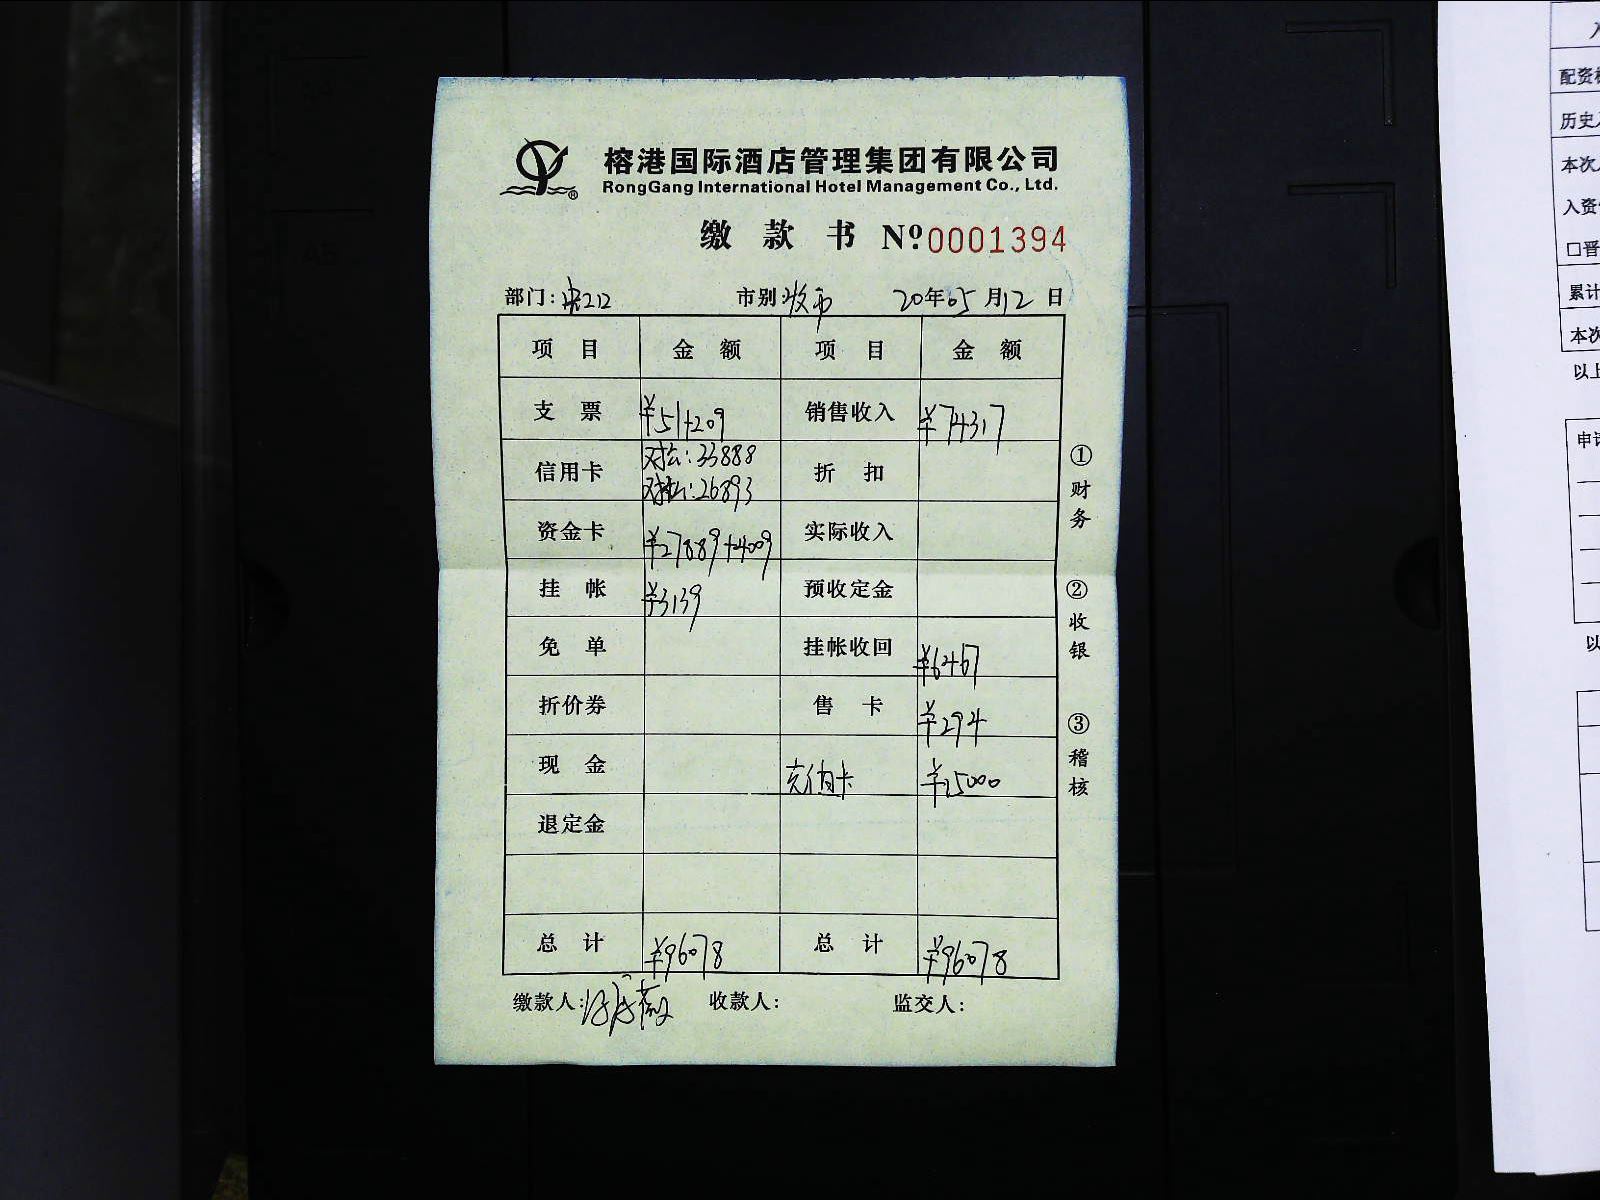 榕港国际酒店管理集团有限公司
RongGang International Hotel Management Co., Ltd.
缴款书 Nº 0001394
部门: 市别:收市 20年05月12日
项目 金额 项目 金额
支票 ¥51+209 销售收入 ¥74317
信用卡 对公:33888 折扣
对私:26893
资金卡 ¥27889+4009 实际收入
挂帐 ¥3139 预收定金
免单 挂帐收回 ¥6467
折价券 售卡 ¥294
现金 充值卡 ¥15000
退定金
总计 ¥96078 总计 ¥96078
缴款人: 收款人: 监交人:
①财务
②收银
③稽核
配资
历史
本次
入资
□晋
累计
本次
以上